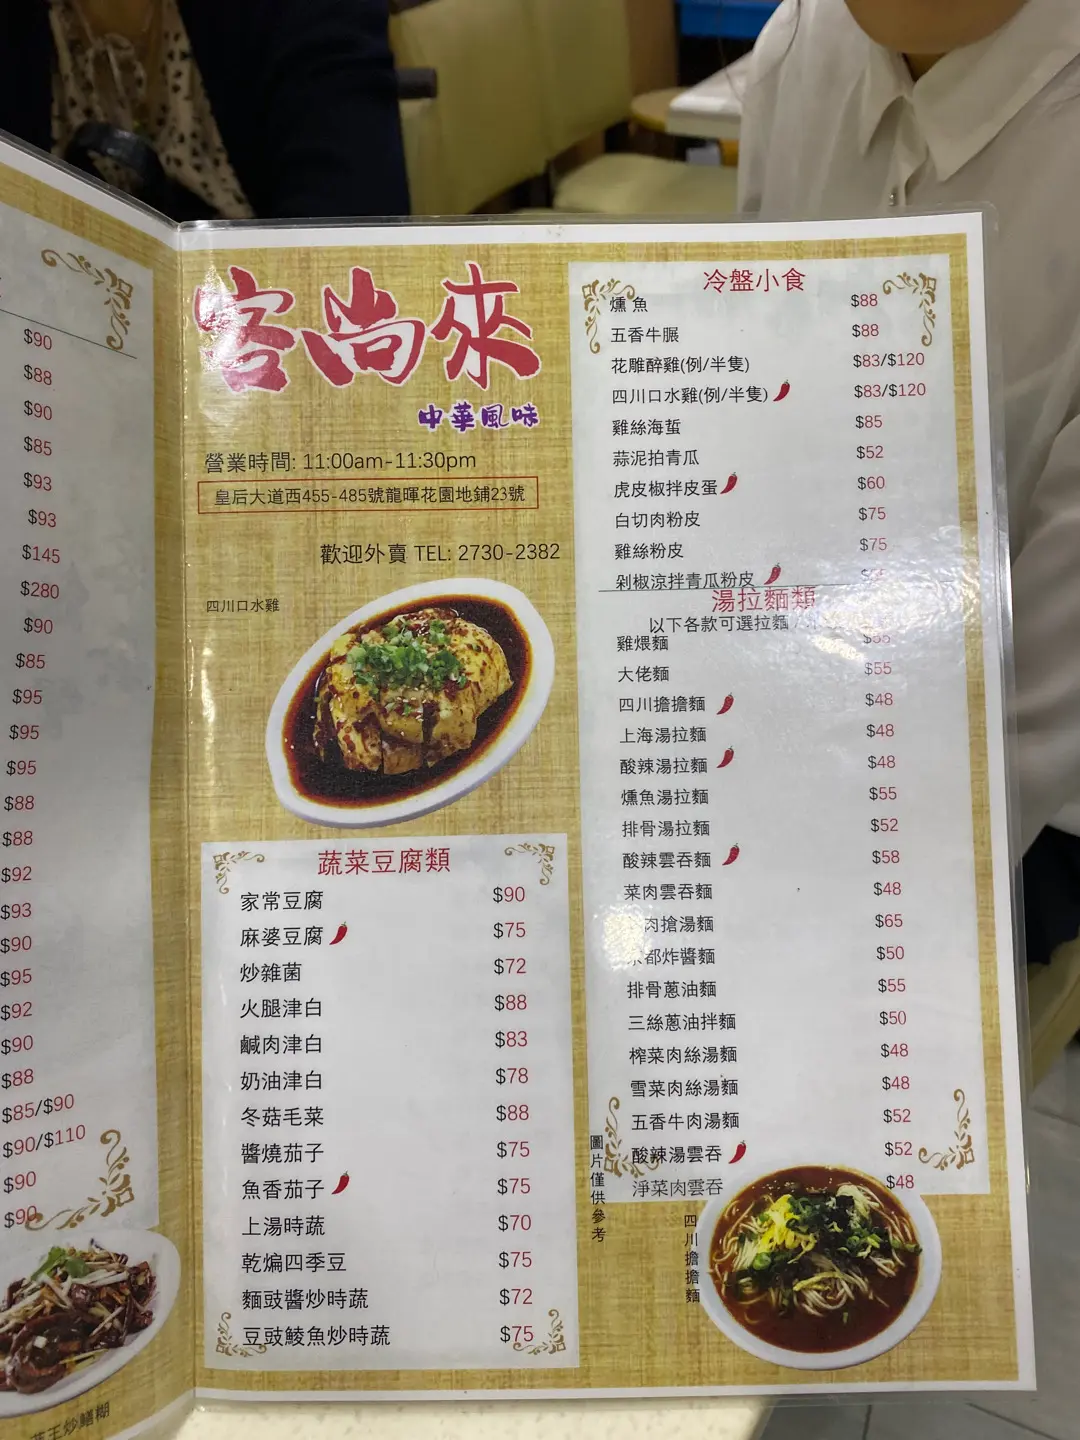 $90
$88
$90
$85
$93
$93
$145
$280
$90
$85
$95
$95
$95
$88
$88
$92
$93
$90
$95
$92
$90
$88
$85/$90
$90/$110
$90
$90
炒鱔糊
客尚來
中華風味
營業時間: 11:00am-11:30pm
皇后大道西455-485號龍暉花園地鋪23號
歡迎外賣 TEL: 2730-2382
四川口水雞
蔬菜豆腐類
家常豆腐 $90
麻婆豆腐 $75
炒雜菌 $72
火腿津白 $88
鹹肉津白 $83
奶油津白 $78
冬菇毛菜 $88
醬燒茄子 $75
魚香茄子 $75
上湯時蔬 $70
乾煸四季豆 $75
麵豉醬炒時蔬 $72
豆豉鯪魚炒時蔬 $75
冷盤小食
燻魚 $88
五香牛𦟌 $88
花雕醉雞(例/半隻) $83/$120
四川口水雞(例/半隻) $83/$120
雞絲海蜇 $85
蒜泥拍青瓜 $52
虎皮椒拌皮蛋 $60
白切肉粉皮 $75
雞絲粉皮 $75
剁椒涼拌青瓜粉皮
湯拉麵類
以下各款可選拉麵
雞煨麵 $55
大佬麵 $55
四川擔擔麵 $48
上海湯拉麵 $48
酸辣湯拉麵 $48
燻魚湯拉麵 $55
排骨湯拉麵 $52
酸辣雲吞麵 $58
菜肉雲吞麵 $48
肉搶湯麵 $65
都炸醬麵 $50
排骨蔥油麵 $55
三絲蔥油拌麵 $50
榨菜肉絲湯麵 $48
雪菜肉絲湯麵 $48
五香牛肉湯麵 $52
酸辣湯雲吞 $52
淨菜肉雲吞 $48
圖片僅供參考
四川擔擔麵